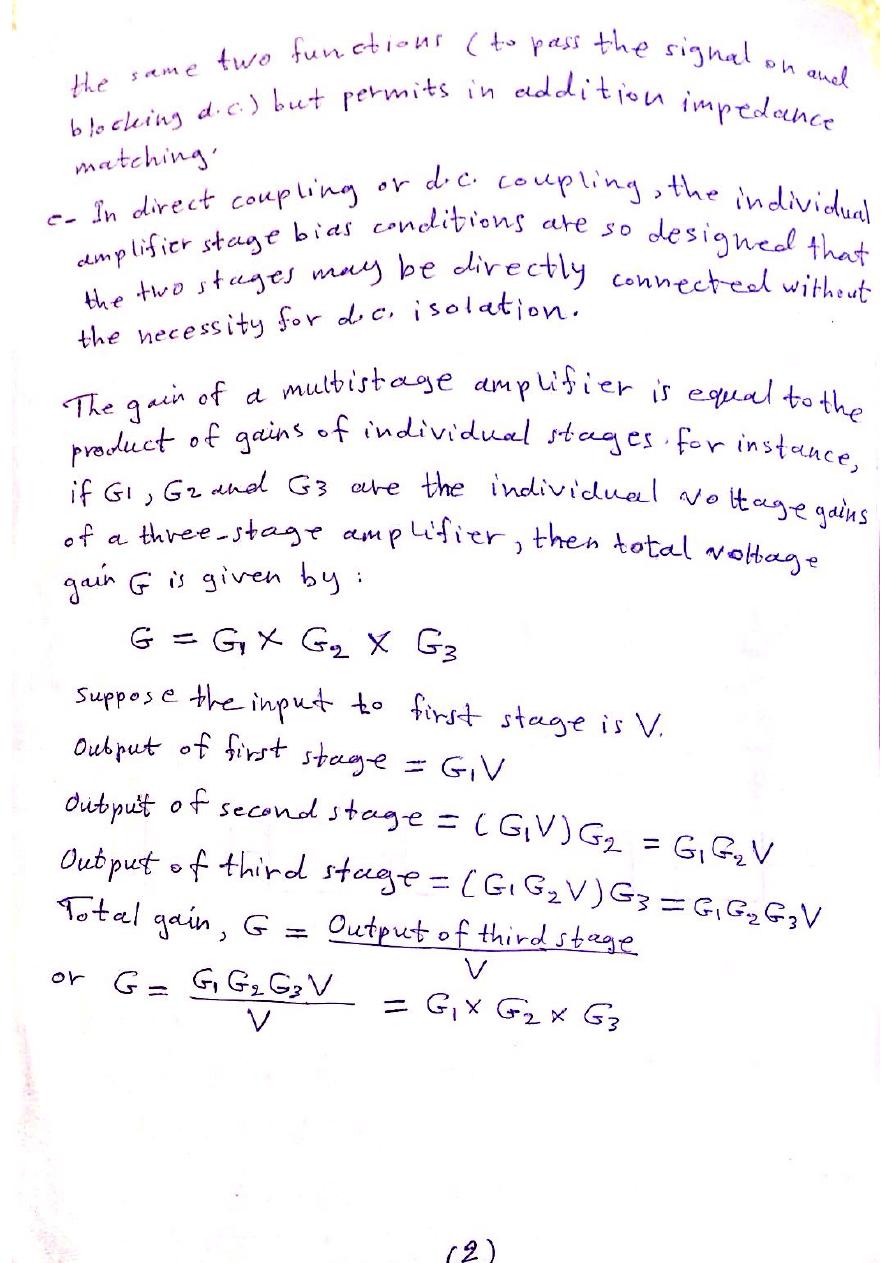 the same two functions (to pass the signal on and
blocking d.c.) but permits in addition impedance
matching.
c- In direct coupling or d.c. coupling, the individual
amplifier stage bias conditions are so designed that
the two stages may be directly connected without
the necessity for d.c. isolation.
The gain of a multistage amplifier is equal to the
product of gains of individual stages. for instance,
if G1, G2 and G3 are the individual voltage gains
of a three-stage amplifier, then total voltage
gain G is given by:
G = G₁ × G₂ × G₃
Suppose the input to first stage is V.
Output of first stage = G₁V
Output of second stage = (G₁V) G₂ = G₁G₂V
Output of third stage = (G₁G₂V) G₃ = G₁G₂G₃V
Total gain, G = Output of third stage
V
or G = G₁G₂G₃V = G₁ × G₂ × G₃
V
(2)